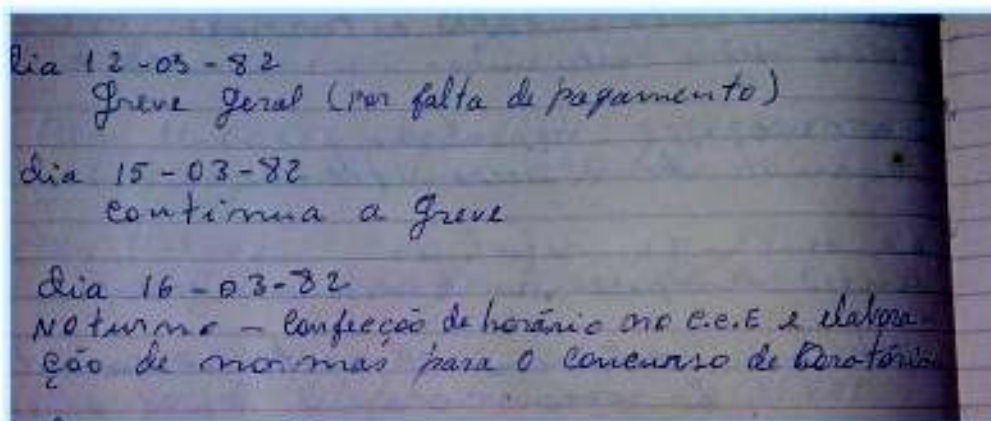 dia 12-03-82
Greve geral (por falta de pagamento)
dia 15-03-82
continua a greve
dia 16-03-82
Noturno - Confecção de horário no C.C.E e elabora-
ção de normas para o concurso de Oratória